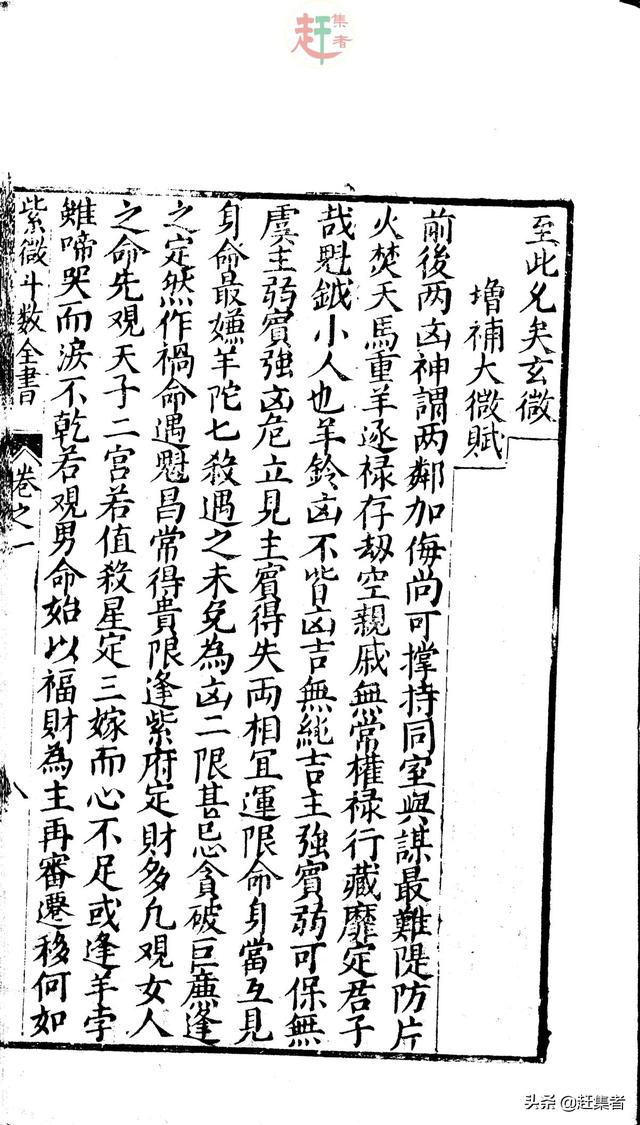 赶集者
至此允矣玄微
增補太微賦
前後两凶神謂两鄰加侮尚可撑持同室與謀最難隄防片
火焚天馬重羊逐禄存刼空親戚無常權禄行藏靡定君子
哉魁鉞小人也羊鈴凶不皆凶吉無純吉主強賓弱可保無
虞主弱賓強凶危立見主賓得失两相宜運限命身當互見
身命最嫌羊陀七殺遇之未免為凶二限甚忌貪破巨廉逢
之定然作禍命遇魁昌常得貴限逢紫府定財多凢觀女人
之命先觀天子二宮若值殺星定三嫁而心不足或逢羊孛
雖啼哭而淚不乾若观男命始以福財為主再審遷移何如
紫微斗数全書 卷之一
头条 @赶集者